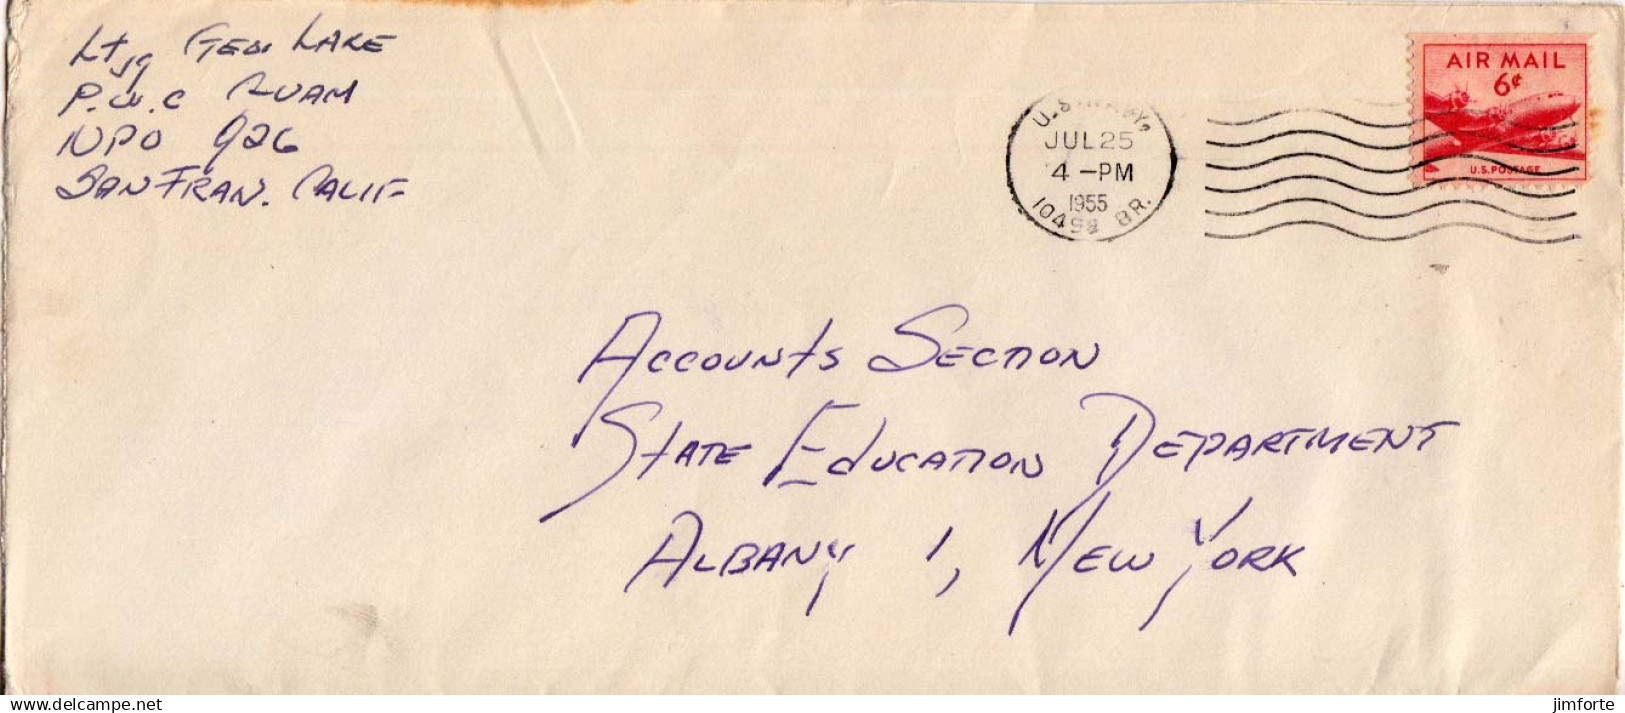 Ltjg Geo. Lake
P.W.C Guam
NPO 926
San Fran. Calif
U.S. NAVY
JUL 25
4 -PM
1955
10498 BR.
AIR MAIL
6¢
U.S. POSTAGE
Accounts Section
State Education Department
Albany 1, New York
delcampe.net
jimforte